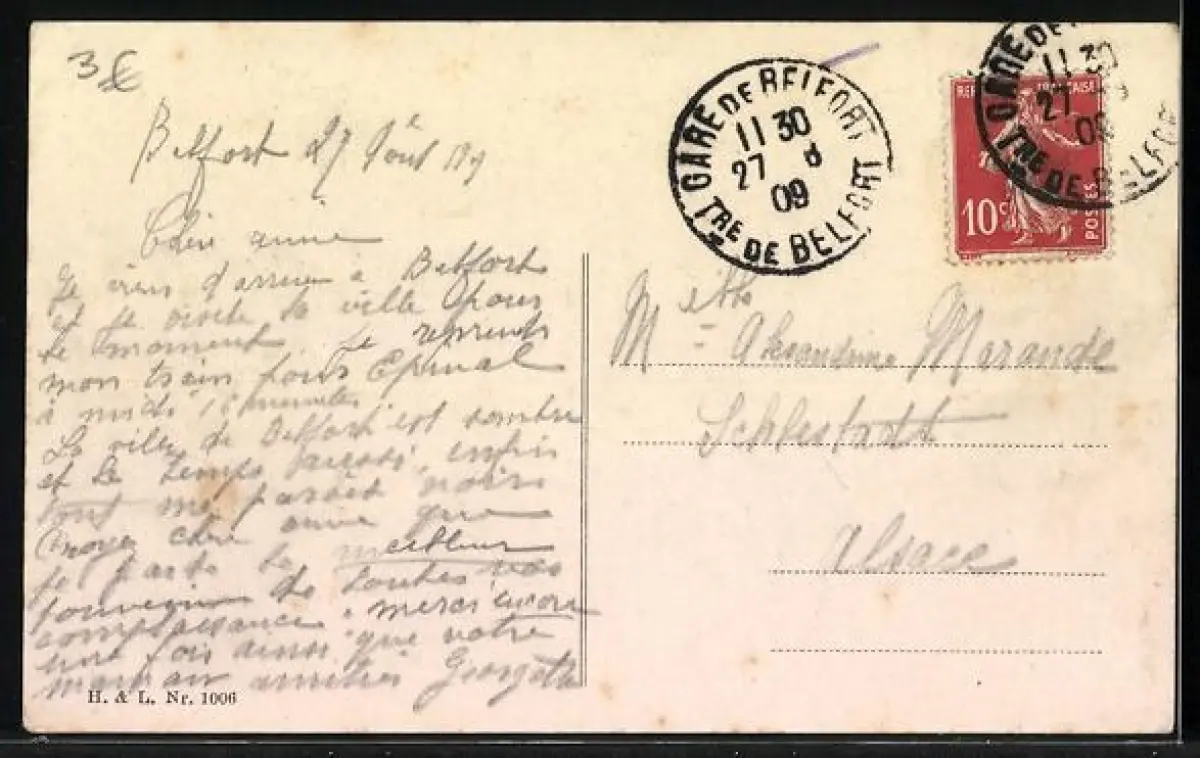 3 €
Belfort 27 Août 1909
GARE DE BELFORT
11 30
27 8
09
TRE DE BELFORT
GARE DE
11 30
27
09
TRE DE BELFORT
REP FRANÇAISE
10c
POSTES
Chère amie
Je viens d'arriver à Belfort
et je visite la ville pour
le moment Je reprends
mon train pour Epinal
à midi 18 minutes
La ville de Belfort est sombre
et le temps aussi, enfin
tout me parait noir
Croyez chère amie que
je garde le meilleur
souvenir de toutes vos
complaisances merci encore
une fois ainsi que votre
maman amitiés Georgette
Mlle Alexandrine Marande
Schlestadt
Alsace
H. & L. Nr. 1006